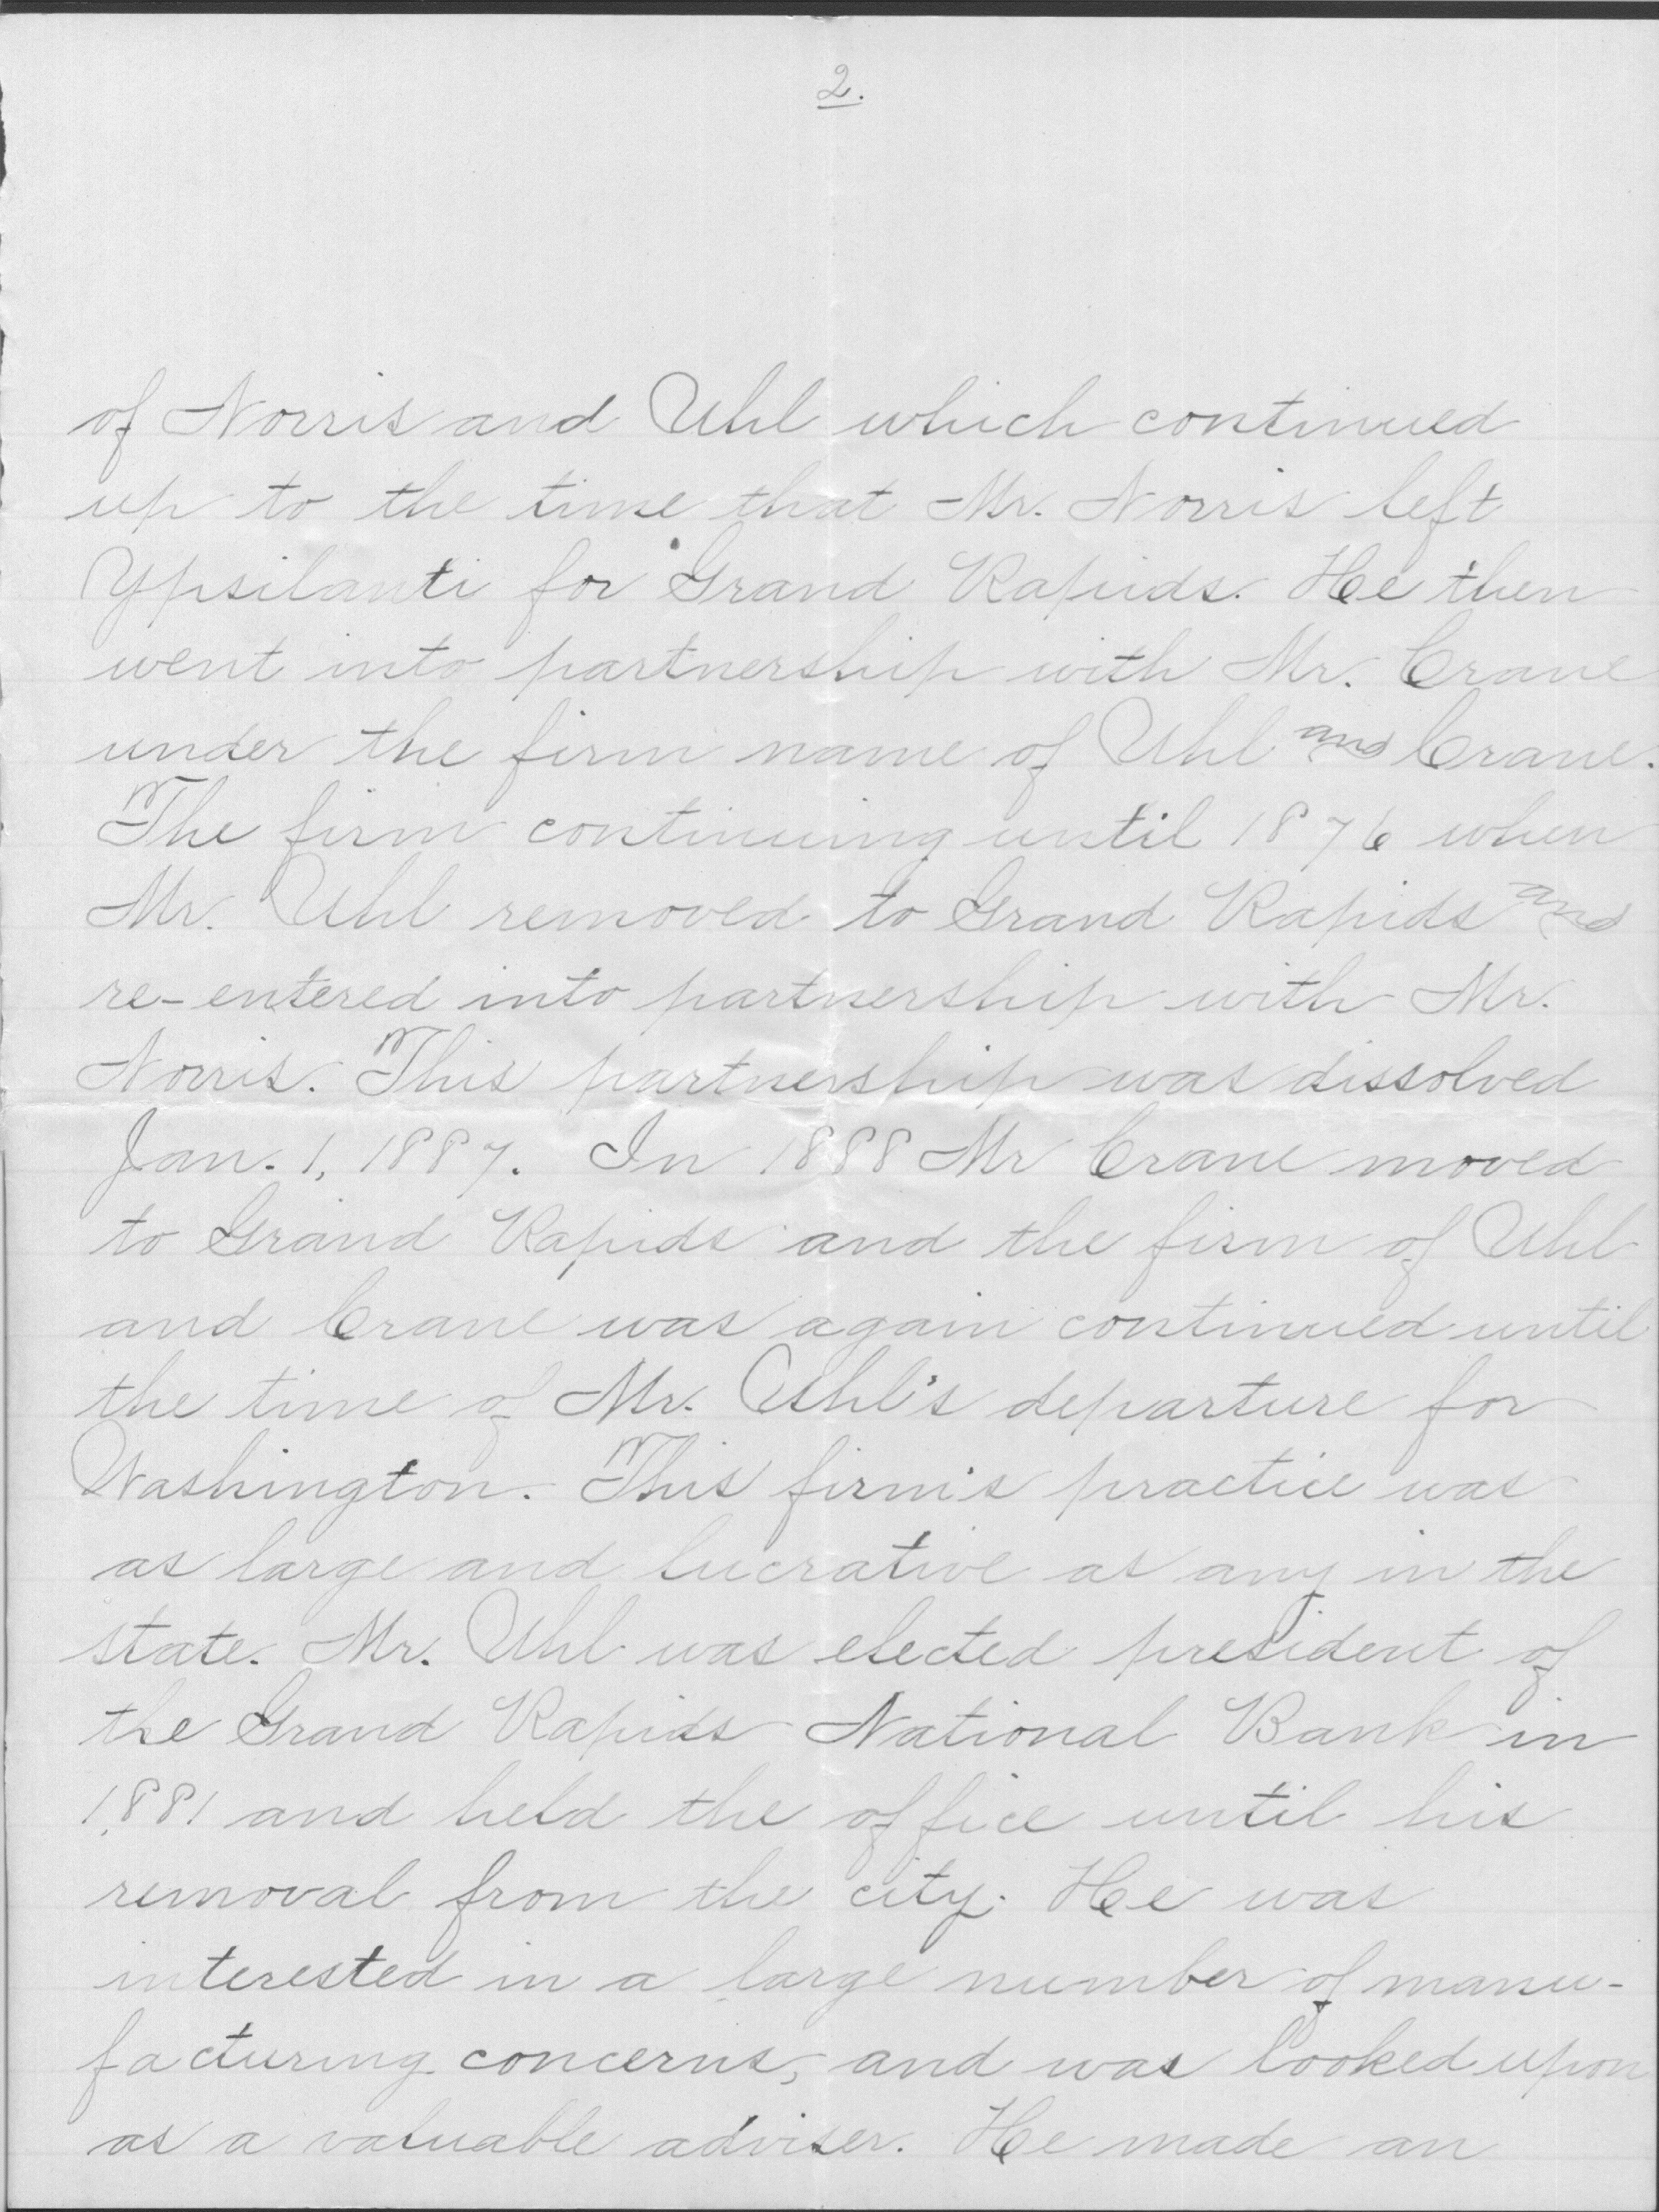 2.
of Norris and Uhl which continued
up to the time that Mr. Norris left
Ypsilanti for Grand Rapids. He then
went into partnership with Mr. Crane
under the firm name of Uhl and Crane.
The firm continuing until 1876 when
Mr. Uhl removed to Grand Rapids and
re-entered into partnership with Mr.
Norris. This partnership was dissolved
Jan. 1, 1887. In 1888 Mr Crane moved
to Grand Rapids and the firm of Uhl
and Crane was again continued until
the time of Mr. Uhl's departure for
Washington. This firm's practice was
as large and lucrative as any in the
state. Mr. Uhl was elected president of
the Grand Rapids National Bank in
1881 and held the office until his
removal from the city. He was
interested in a large number of manu-
facturing concerns, and was looked upon
as a valuable adviser. He made an